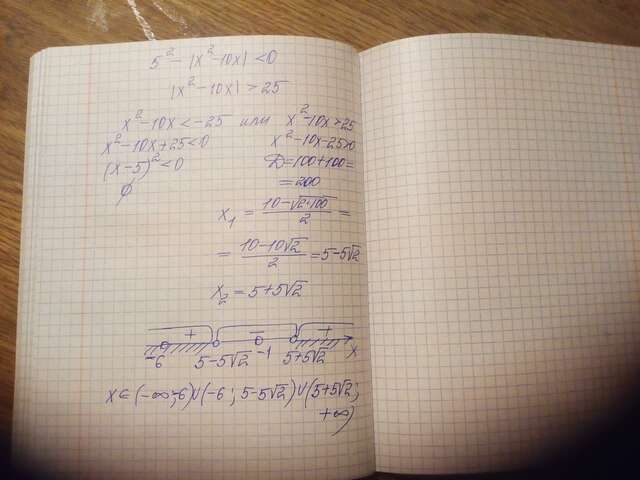 5² - |x² - 10x| < 0
|x² - 10x| > 25
x² - 10x < -25 или x² - 10x > 25
x² - 10x + 25 < 0 x² - 10x - 25 > 0
(x - 5)² < 0 D = 100 + 100 =
∅ = 200
x₁ = (10 - √(2·100))/2 =
= (10 - 10√2)/2 = 5 - 5√2
x₂ = 5 + 5√2
+ - +
-6 5-5√2 -1 5+5√2 x
x ∈ (-∞; -6) ∪ (-6; 5-5√2) ∪ (5+5√2;
+∞)